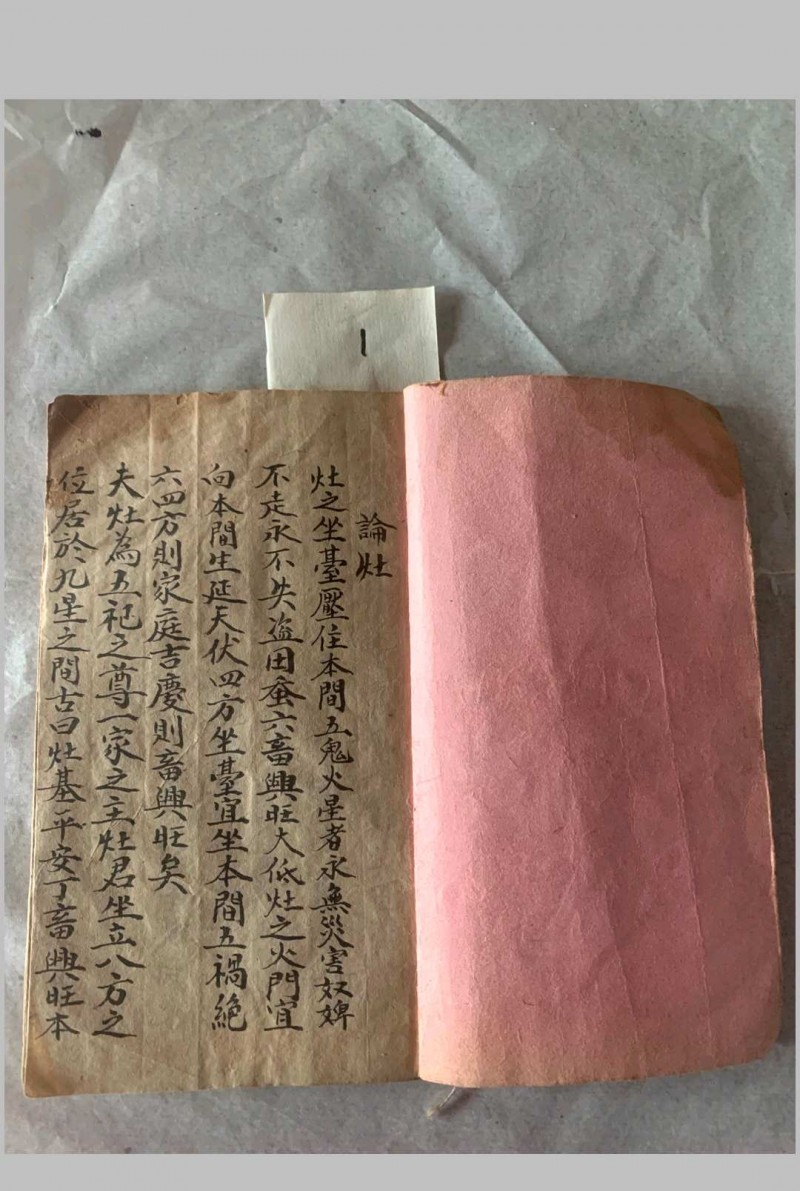 1
論灶
灶之坐臺壓住本間五鬼火星者永無災害奴婢
不走永不失盜田蚕六畜興旺大低灶之火門宜
向本間生延天伏四方坐臺宜坐本間五禍絶
六四方則家庭吉慶則畜興旺矣
夫灶為五祀之尊一家之主灶君坐立八方之
位居於九星之間古曰灶基平安丁畜興旺本